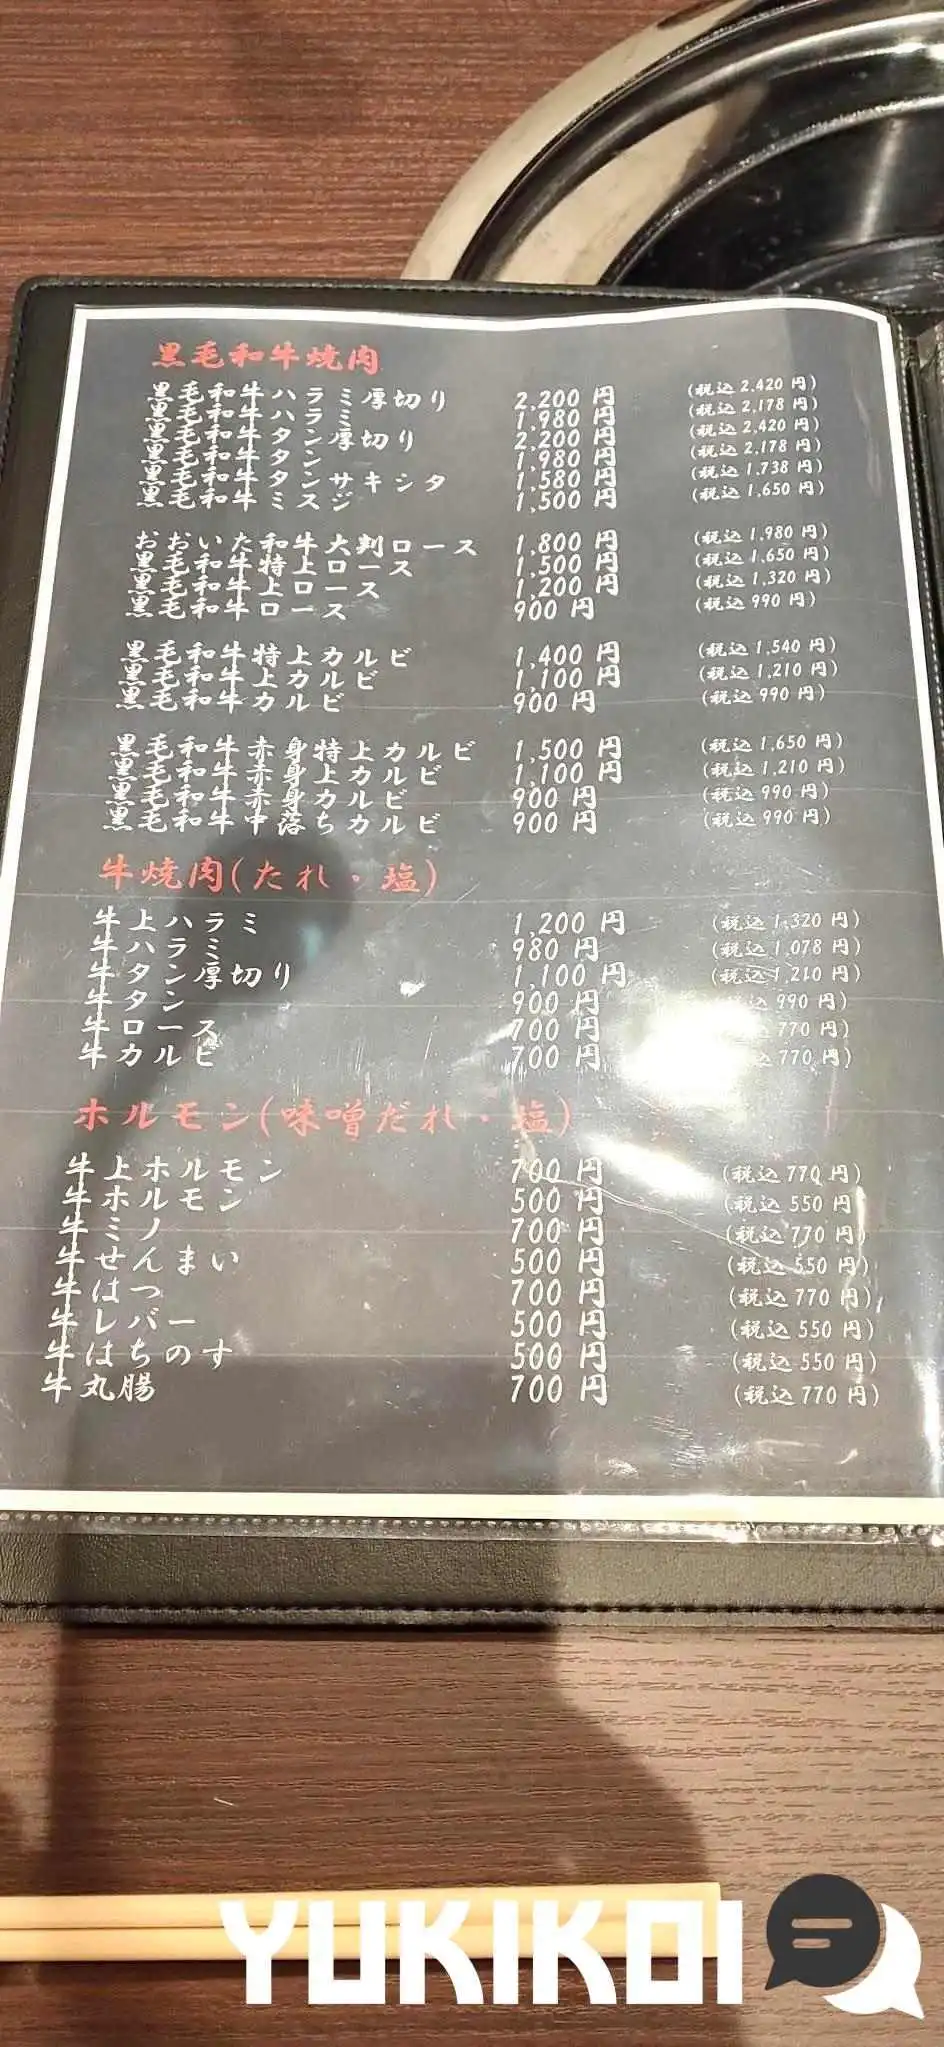 黒毛和牛焼肉
黒毛和牛ハラミ厚切り 2,200 円 (税込 2,420 円)
黒毛和牛ハラミ 1,980 円 (税込 2,178 円)
黒毛和牛タン厚切り 2,200 円 (税込 2,420 円)
黒毛和牛タン 1,980 円 (税込 2,178 円)
黒毛和牛タンサキシタ 1,580 円 (税込 1,738 円)
黒毛和牛ミスジ 1,500 円 (税込 1,650 円)
おおいた和牛大判ロース 1,800 円 (税込 1,980 円)
黒毛和牛特上ロース 1,500 円 (税込 1,650 円)
黒毛和牛上ロース 1,200 円 (税込 1,320 円)
黒毛和牛ロース 900 円 (税込 990 円)
黒毛和牛特上カルビ 1,400 円 (税込 1,540 円)
黒毛和牛上カルビ 1,100 円 (税込 1,210 円)
黒毛和牛カルビ 900 円 (税込 990 円)
黒毛和牛赤身特上カルビ 1,500 円 (税込 1,650 円)
黒毛和牛赤身上カルビ 1,100 円 (税込 1,210 円)
黒毛和牛赤身カルビ 900 円 (税込 990 円)
黒毛和牛中落ちカルビ 900 円 (税込 990 円)
牛焼肉(たれ・塩)
牛上ハラミ 1,200 円 (税込 1,320 円)
牛ハラミ 980 円 (税込 1,078 円)
牛タン厚切り 1,100 円 (税込 1,210 円)
牛タン 900 円 込 990 円)
牛ロース 700 円 770 円)
牛カルビ 700 円 770 円)
ホルモン(味噌だれ・塩)
牛上ホルモン 700 円 (税込 770 円)
牛ホルモン 500 円 (税込 550 円)
牛ミノ 700 円 (税込 770 円)
牛せんまい 500 円 (税込 550 円)
牛はつ 700 円 (税込 770 円)
牛レバー 500 円 (税込 550 円)
牛はちのす 500 円 (税込 550 円)
牛丸腸 700 円 (税込 770 円)
YUKIKOI